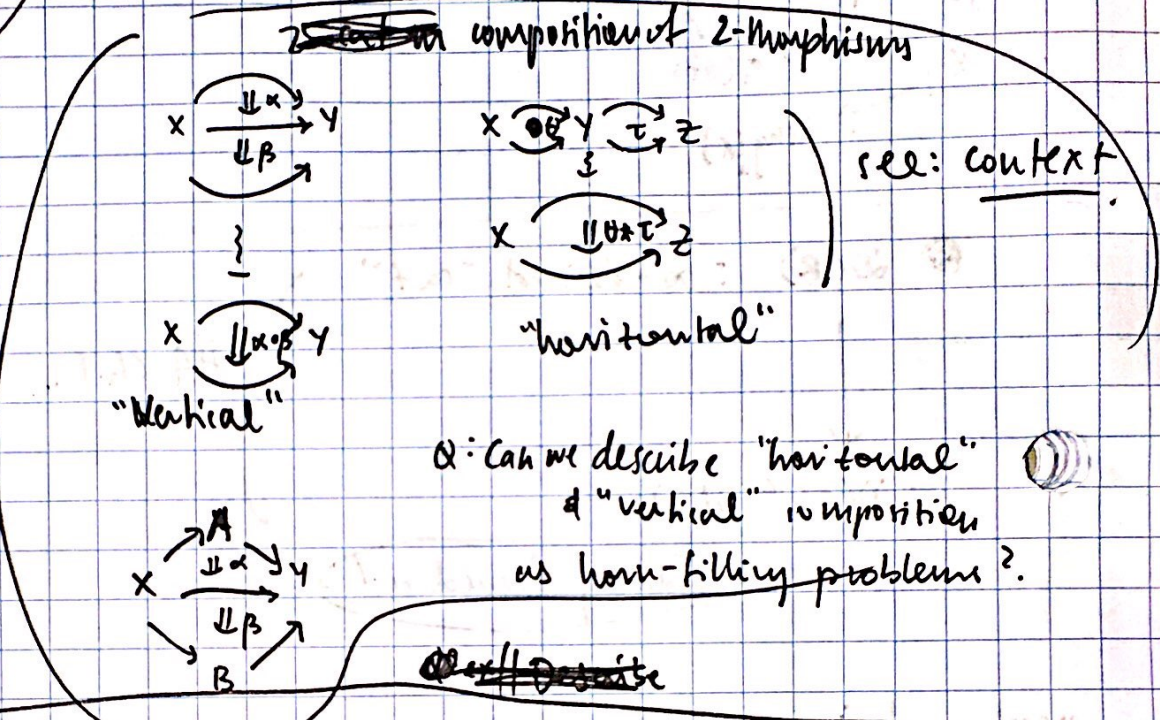 composition of 2-Morphisms
X ⇓α Y
⇓β
X θ Y τ Z
see: context.
X ⇓θ*τ Z
X ⇓α∘β Y
"horizontal"
"Vertical"
Q: Can we describe "horizontal"
& "vertical" composition
as horn-filling problems?
A
X ⇓α Y
⇓β
B
Describe